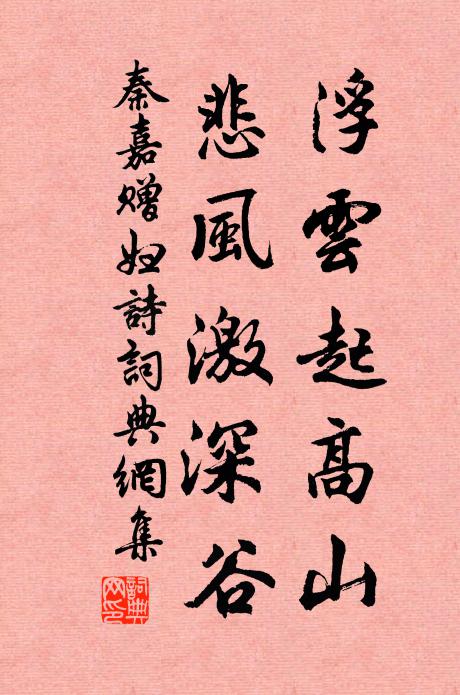 浮雲起高山
悲風激深谷
秦嘉贈婦詩詞典網集
詞典网印